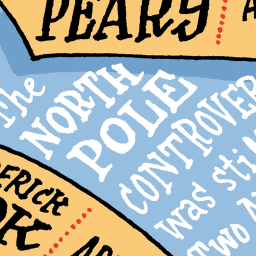 PEARY
The
NORTH
POLE
CONTROVER
was sti
Two
ERICK
OK